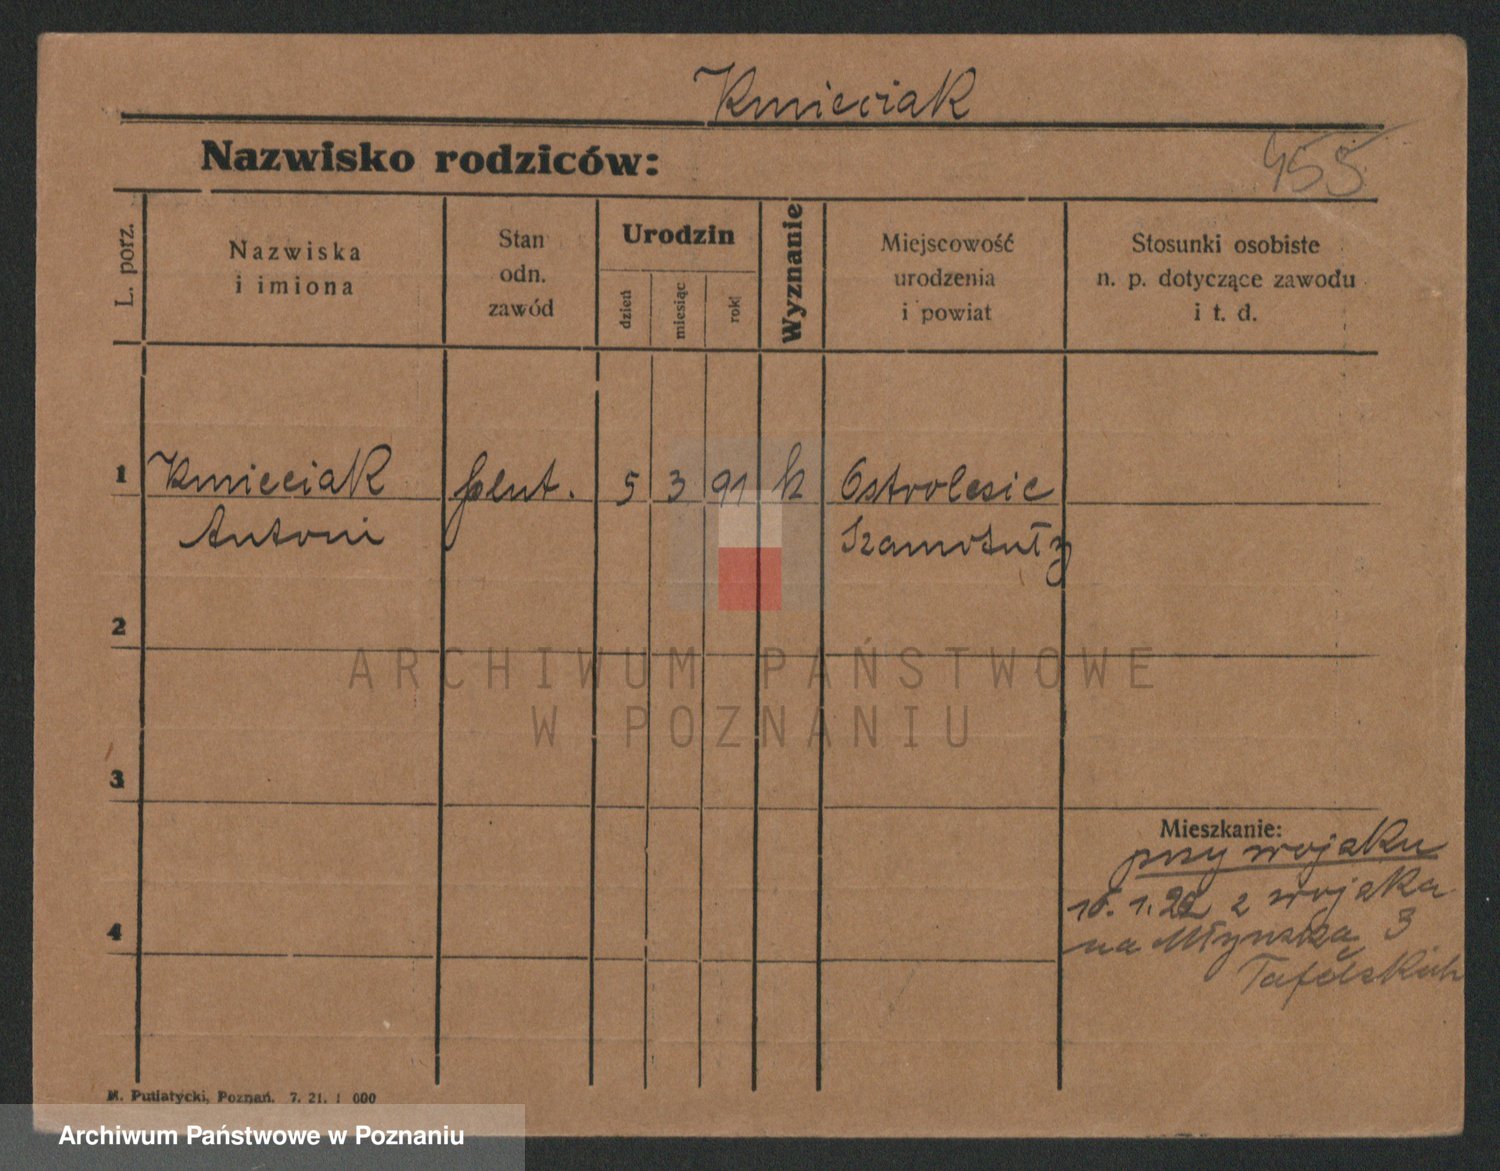 Kmieciak
Nazwisko rodziców:
455
L. porz.
Nazwiska
i imiona
Stan
odn.
zawód
Urodzin
dzień
miesiąc
rok
Wyznanie
Miejscowość
urodzenia
i powiat
Stosunki osobiste
n. p. dotyczące zawodu
i t. d.
1
Kmieciak
Antoni
plut.
5
3
91
k
Ostrolesie
Szamotuły
2
3
4
Mieszkanie:
przy wojsku
16.1.22 z wojska
na Młyńską 3
M. Putiatycki, Poznań. 7. 21. 1 000
ARCHIWUM PAŃSTWOWE
W POZNANIU
Archiwum Państwowe w Poznaniu